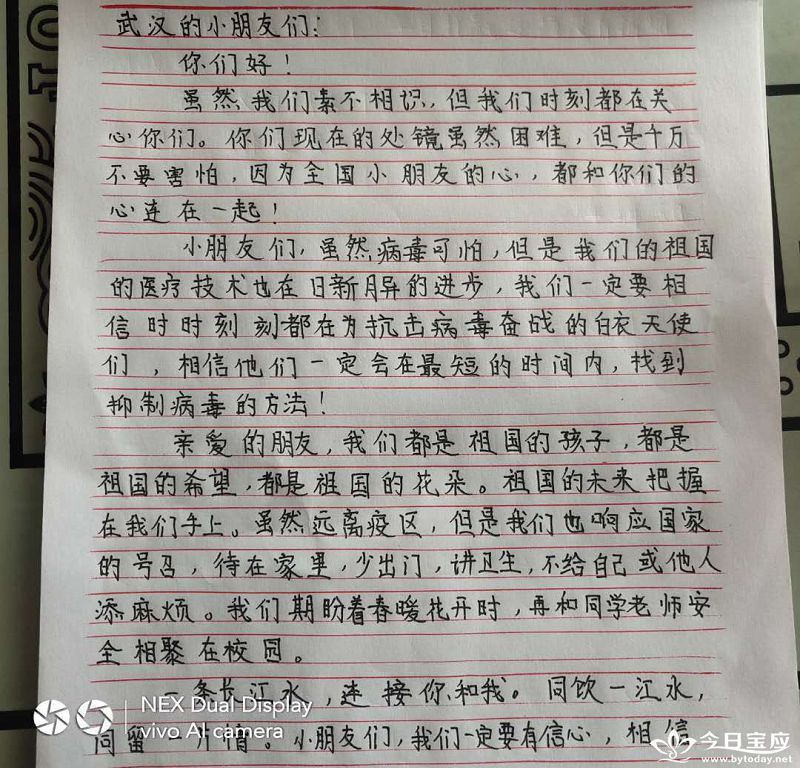 武汉的小朋友们：
你们好！
虽然我们素不相识，但我们时刻都在关
心你们。你们现在的处镜虽然困难，但是千万
不要害怕，因为全国小朋友的心，都和你们的
心连在一起！
小朋友们，虽然病毒可怕，但是我们的祖国
的医疗技术也在日新月异的进步，我们一定要相
信时时刻刻都在为抗击病毒奋战的白衣天使
们，相信他们一定会在最短的时间内，找到
抑制病毒的方法！
亲爱的朋友，我们都是祖国的孩子，都是
祖国的希望，都是祖国的花朵。祖国的未来把握
在我们手上。虽然远离疫区，但是我们也响应国家
的号召，待在家里，少出门，讲卫生，不给自己或他人
添麻烦。我们期盼着春暖花开时，再和同学老师安
全相聚在校园。
一条长江水，连接你和我。同饮一江水，
同留一片情。小朋友们，我们一定要有信心，相信
NEX Dual Display
vivo AI camera
今日宝应
www.bytoday.net